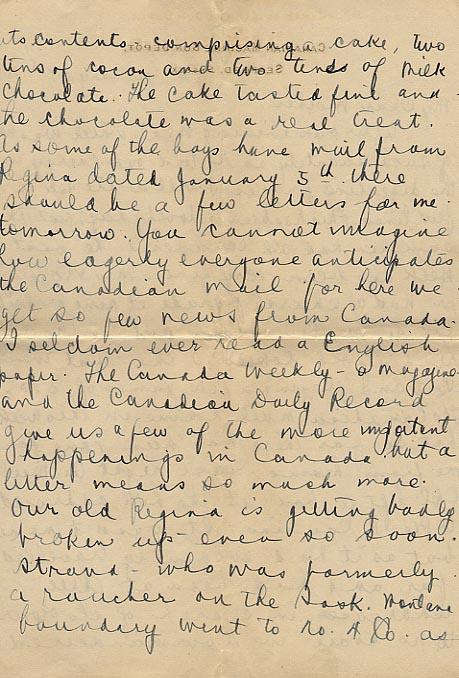 its contents comprising a cake, two
tins of cocoa and two tins of milk
chocolate. The cake tasted fine and
the chocolate was a real treat.
As some of the boys have mail from
Regina dated January 5th there
should be a few letters for me
tomorrow. You cannot imagine
how eagerly everyone anticipates
the Canadian mail for here we
get so few news from Canada.
I seldom ever read a English
paper. The Canada Weekly - a magazine
and the Canadian Daily Record
give us a few of the more important
happenings in Canada but a
letter means so much more.
Our old Regina is getting badly
broken up - even so soon.
Strand - who was formerly
a rancher on the Sask. Montana
boundary went to No. 4 Co. as